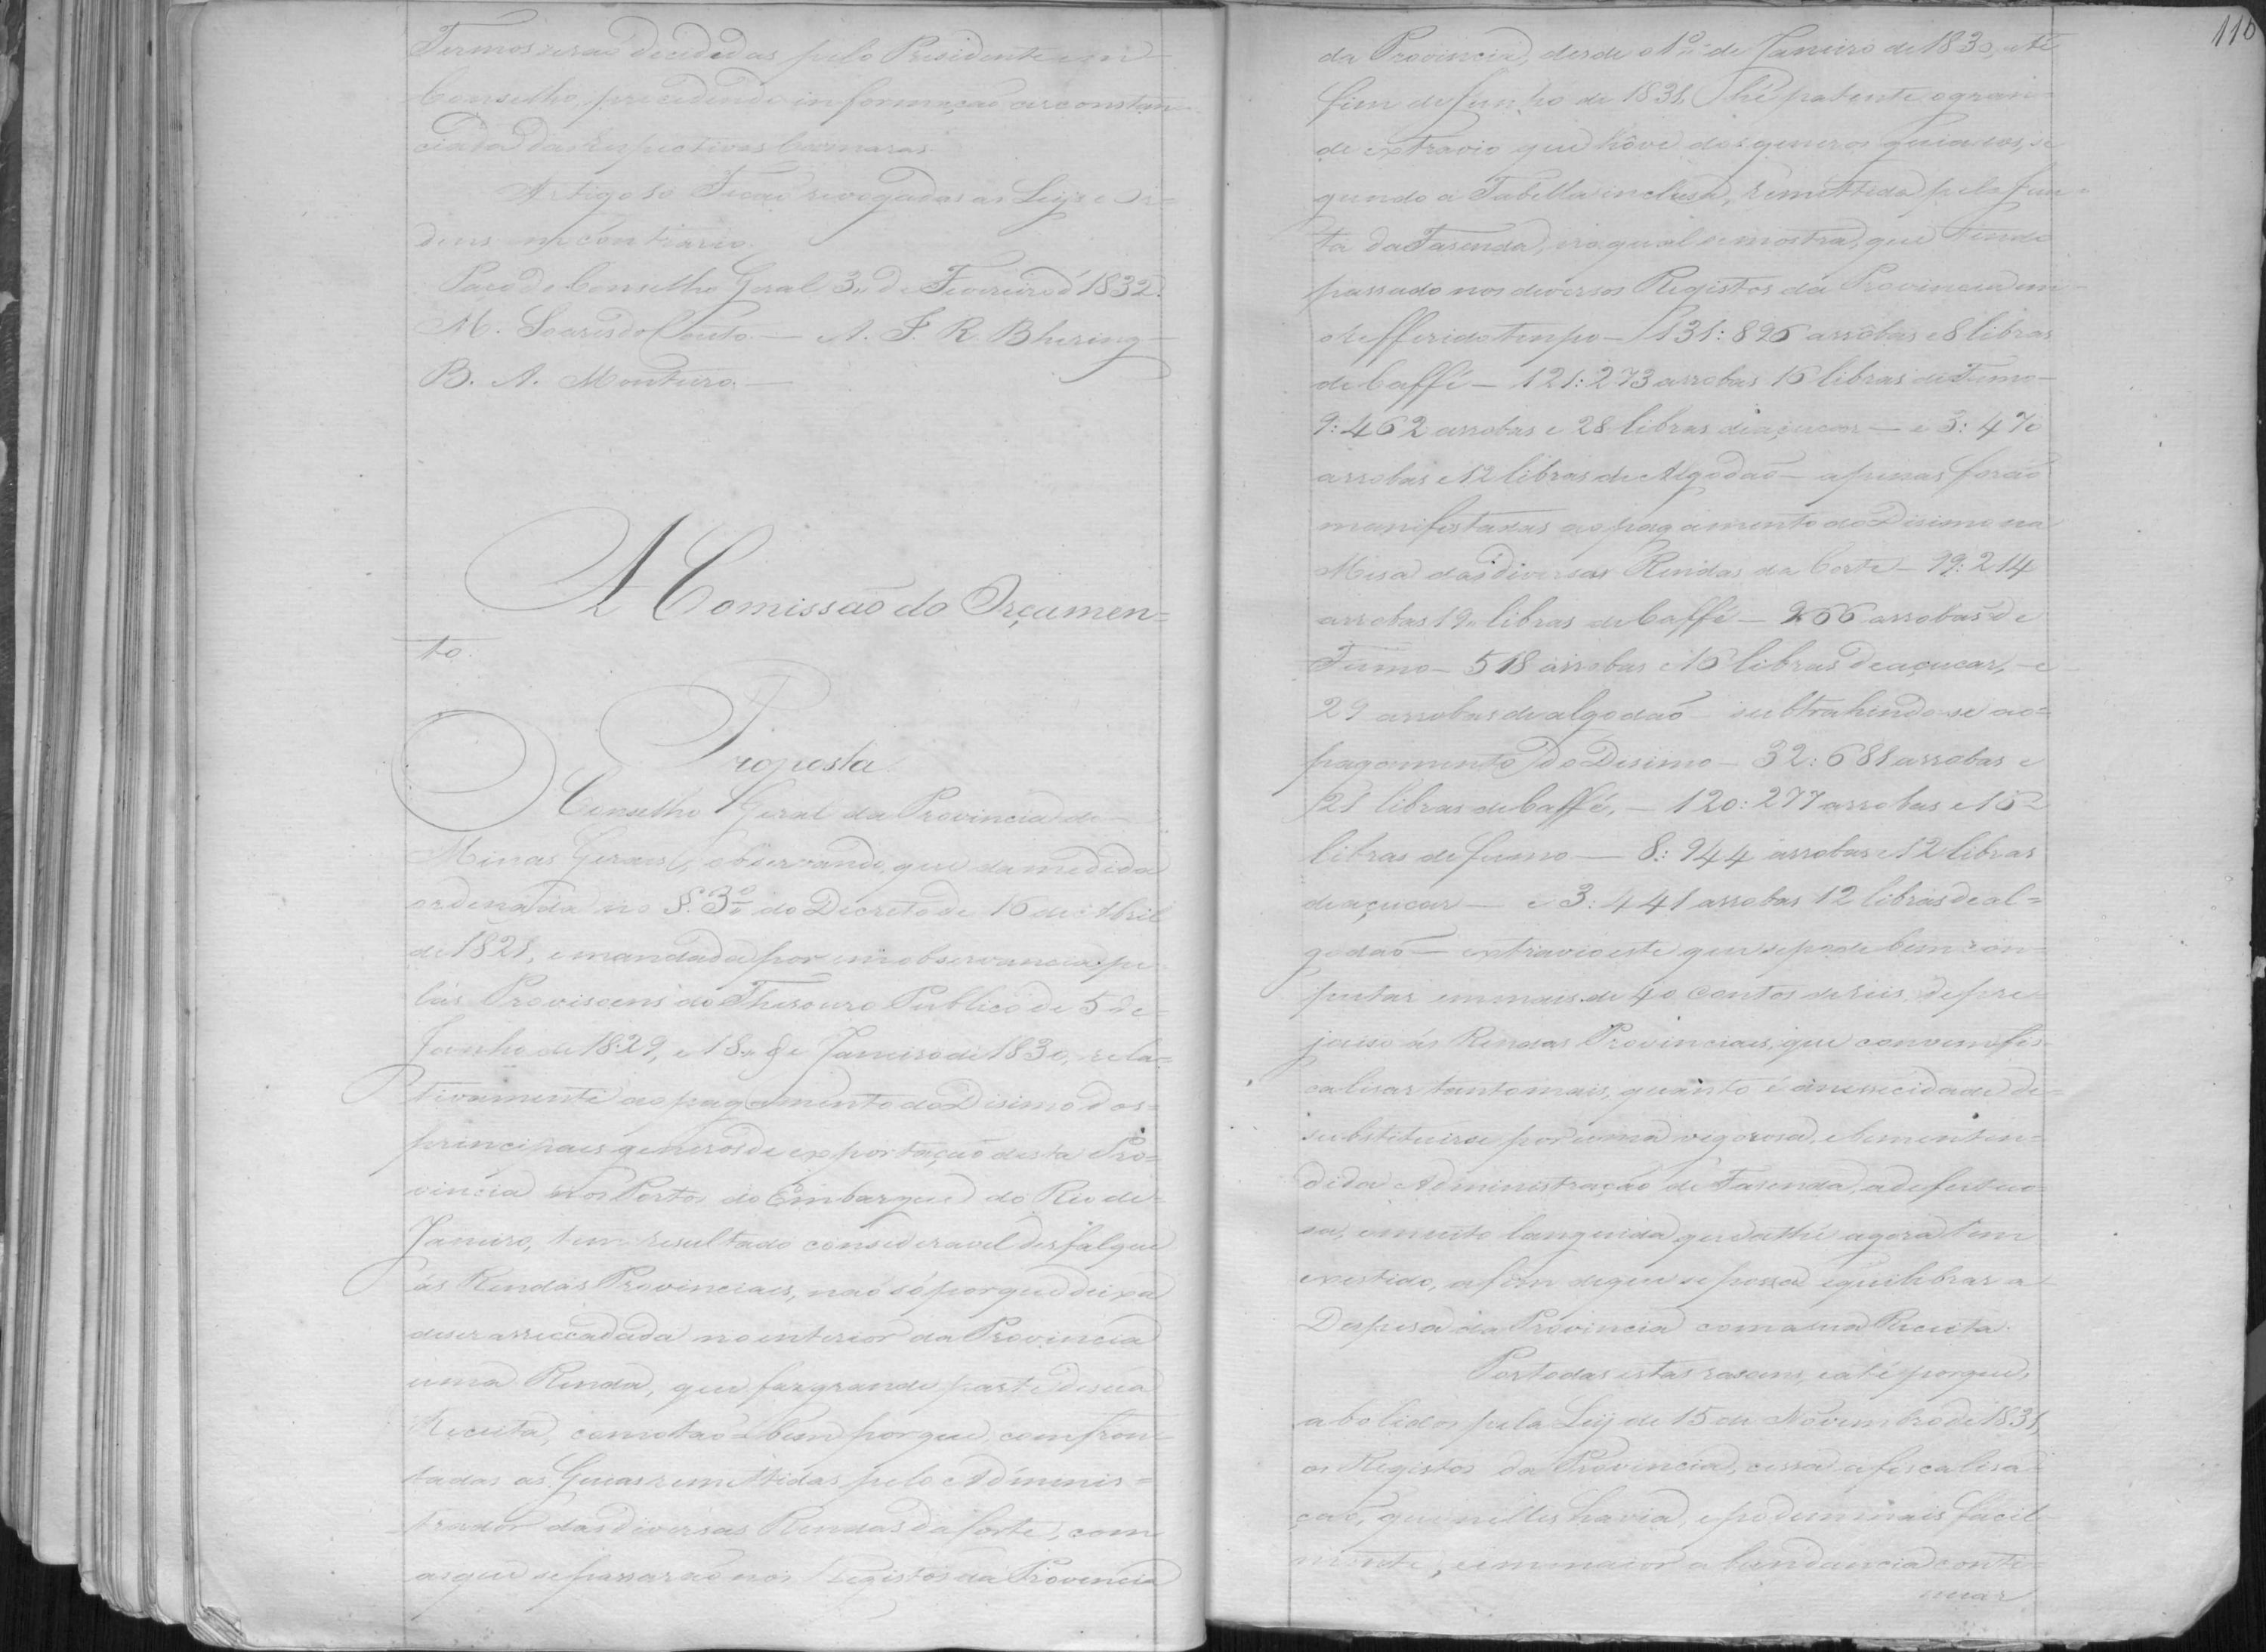 Termos seraõ decededas pelo Presidente em
Conselho, precedendo informaçaõ circonstan-
ciada das respectivas Camaras.
Artigo 6o Ficaõ revogadas as Leys e Or=
dens em contrario.
Paço do Conselho Geral 3 de Fevereiro d' 1832.
M. Soares do Couto — A. J. R. Bhering —
B. A. Monteiro. —
A Comissaõ do Orçamen=
to.
Proposta
O Conselho Geral da Provincia de
Minas Geraes, observando, que da medida
ordenada no §. 3º do Decreto de 16 de Abril
de 1821, e mandada por em observancia pe
las Provisoens do Thesouro Publico de 5 de
Junho de 1829, e 18 de Janeiro de 1830, rela=
tivamente ao pagamento do Disimo dos=
principaes generos de exportaçaõ desta Pro=
vincia nos Portos do Embarque do Rio de
Janeiro, tem resultado consideravel desfalque
ás Rendas Provinciaes, naõ só porque deixa
de ser arreccadada no interior da Provincia
uma Renda, que faz grande parte de sua
Receita, como taõ bem porque, comfron-
tadas as Guias remettidas pelo Adminis=
trador das diversas Rendas da Corte, com
as que se passaraõ nos Registos da Provincia
110
da Provincia, desde o 1º de Janeiro de 1830, até
fim de Junho de 1831, hé patente o gran=
de extravio que hôve dos generos guiados, se
gundo a Tabella inclusa, remettida pela Jun=
ta da Fasenda, na qual se mostra, que tendo
passado nos diversos Registos da Provincia em
o refferido tempo — 131:896 arrobas e 8 libras
de Caffé — 121:273 arrobas 16 libras de Fumo —
9:462 arrobas e 28 libras de açucar — e 3:470
arrobas e 12 libras de Algodaõ — apenas foraõ
manifestadas ao pagamento do Disimo na
Mesa das diversas Rendas da Corte — 99:214
arrobas 19 libras de Caffé — 966 arrobas de
Fumo — 518 arrobas e 16 libras de açucar, — e
29 arrobas de algodaõ subtrahindo-se ao=
pagamento do Desimo — 32:681 arrobas e
21 libras de Caffé, — 120:277 arrobas e 16
libras de fumo — 8:944 arrobas e 12 libras
de açucar — e 3:441 arrobas 12 libras de al=
godaõ — extravio este que se pode bem con=
putar em mais de 40 contos de reis de pre=
juiso ás Rendas Provinciaes, que convem fis
calisar tanto mais, quanto é a nessecidade de=
substituirse por uma vigorosa, e bem enten=
dida Administraçaõ de Fasenda, a defeituo=
sa, e muito languida que athé agora tem
existido, a fim de que se possa equilibrar a
Despesa da Provincia com a sua Receita.
Por todas estas rasoens, e até porque,
abolidos pela Ley de 15 de Novembro de 1831,
os Registos da Provincia, cessa a fiscalisa=
çaõ, que nelles havia, e podem mais facil
mente, e em maior abundancia conti=
nuar